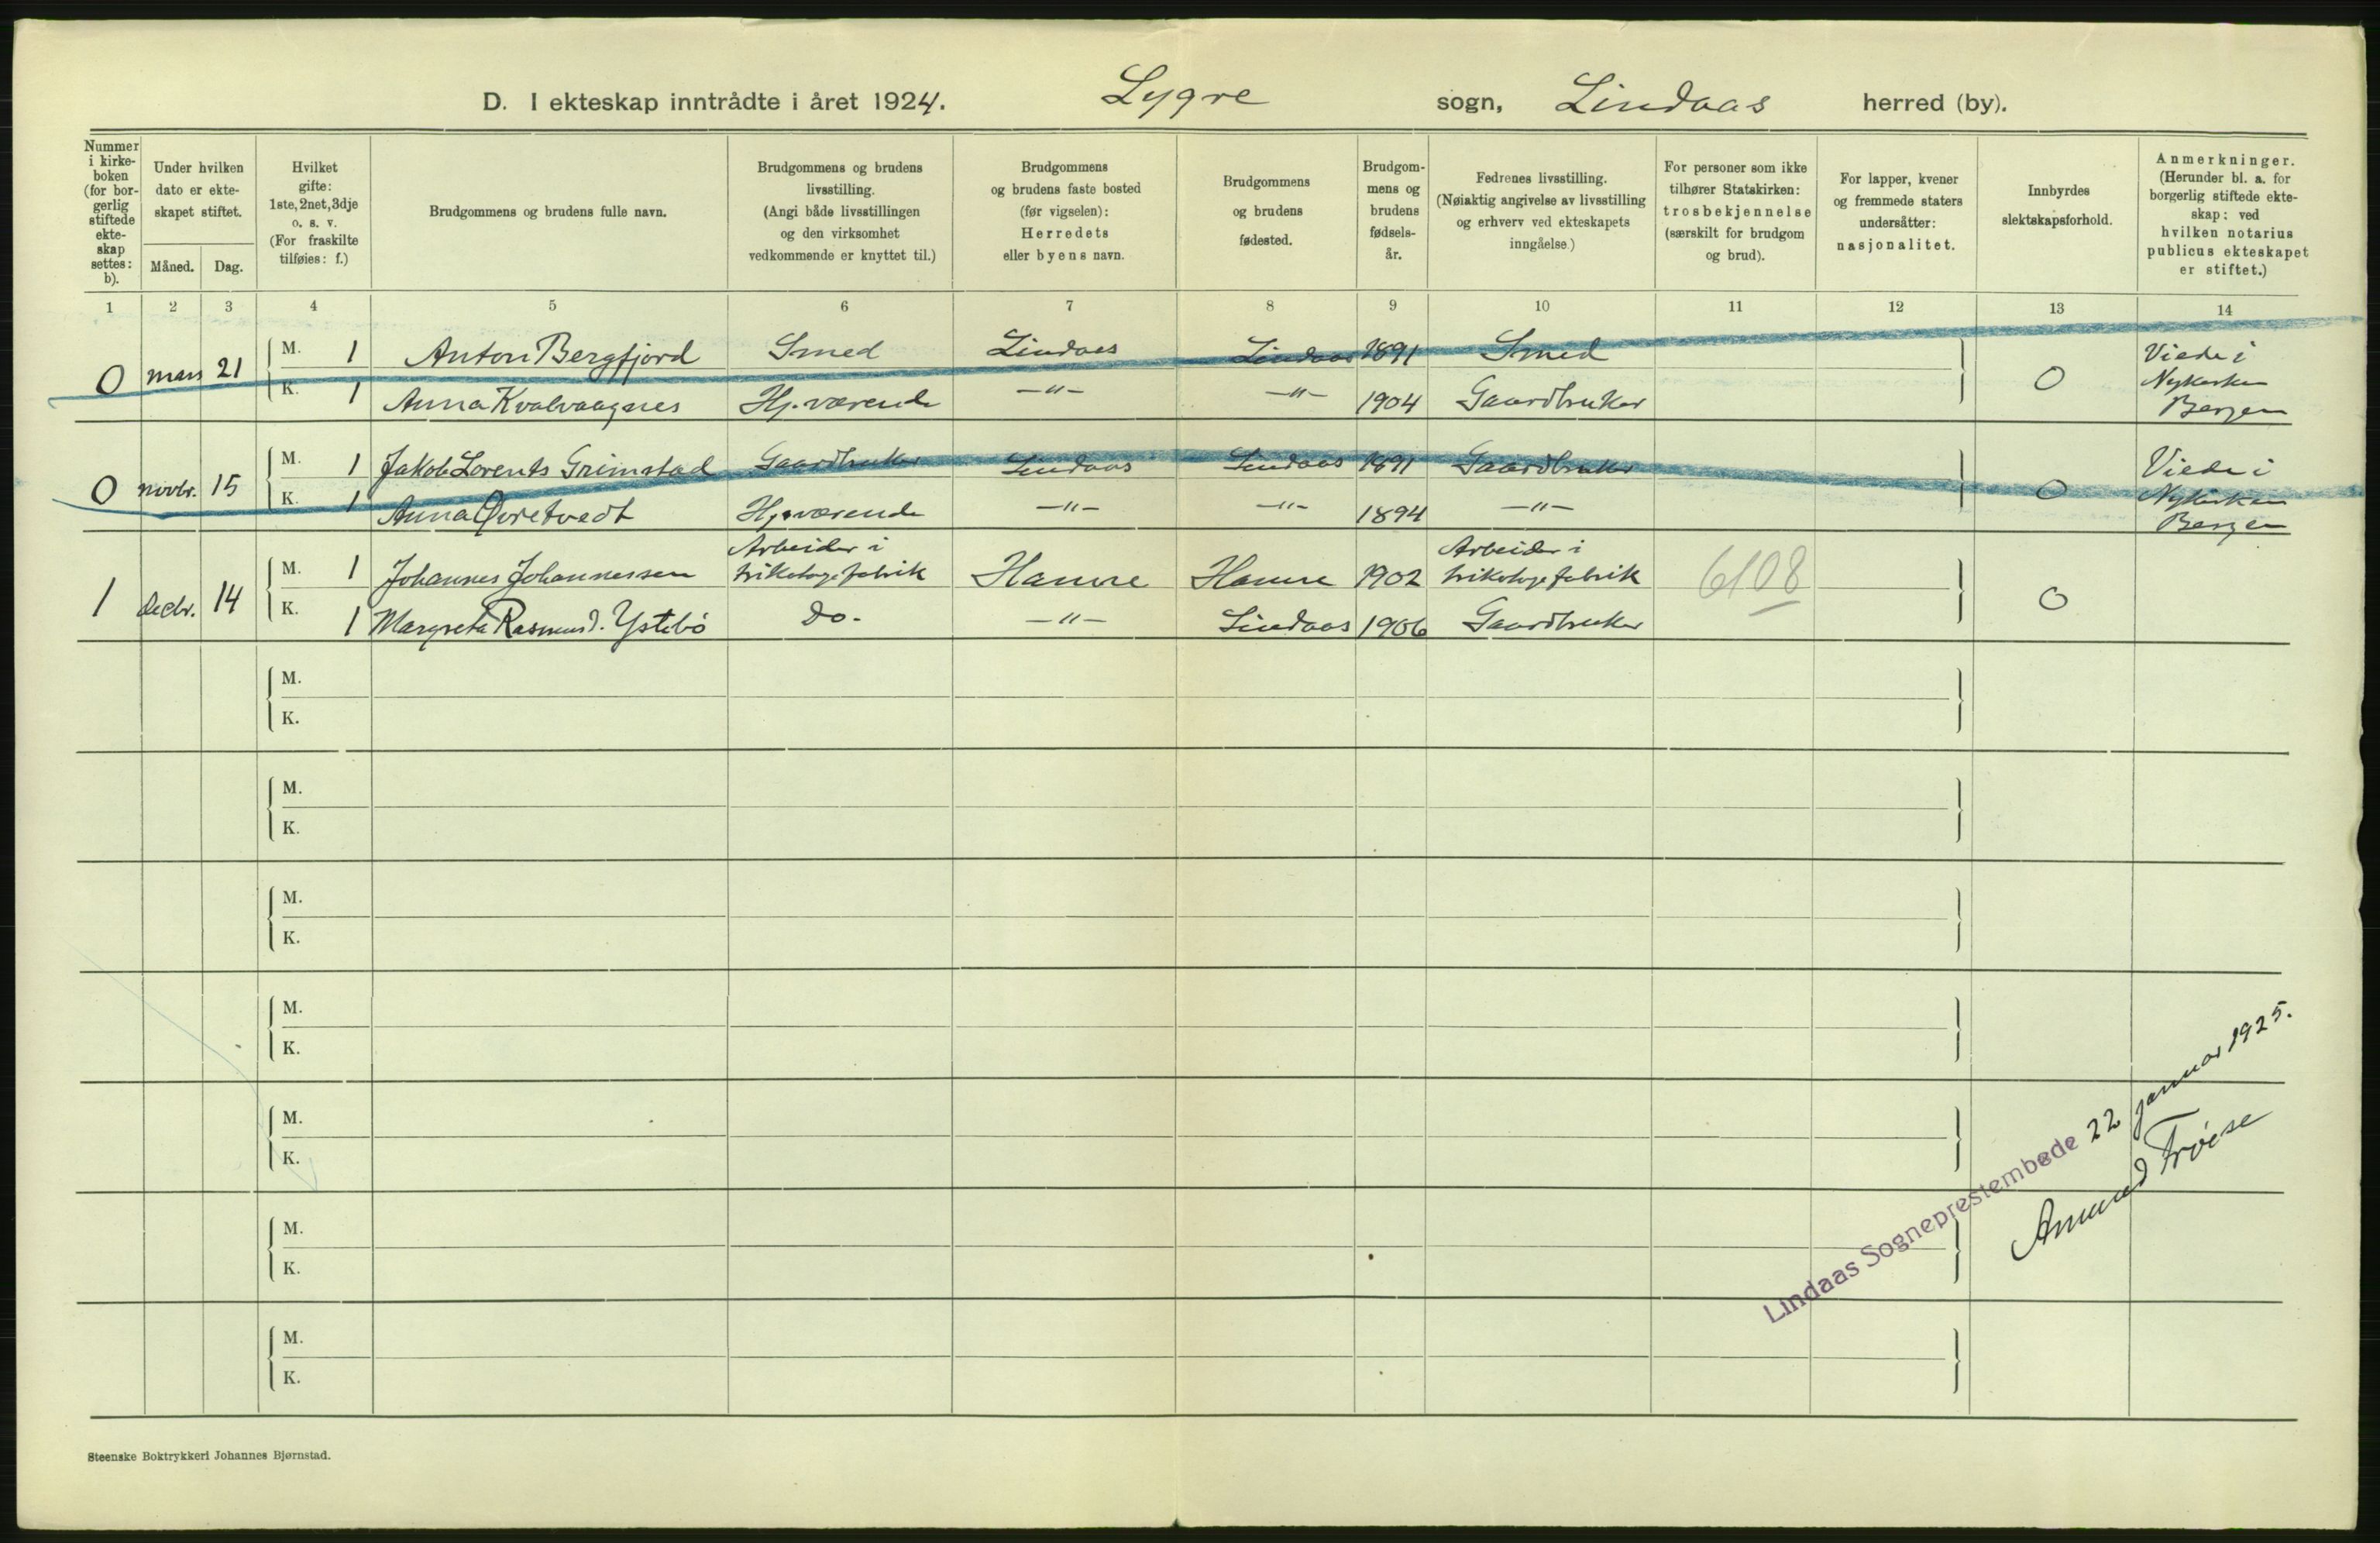 D. I ekteskap inntrådte i året 1924. Lygre sogn, Lindaas herred (by).
Nummer i kirkeboken (for borgerlig stiftede ekteskap settes: b).
Under hvilken dato er ekteskapet stiftet.
Måned. Dag.
Hvilket gifte: 1ste, 2net, 3dje o. s. v. (For fraskilte tilføies: f.)
Brudgommens og brudens fulle navn.
Brudgommens og brudens livsstilling. (Angi både livsstillingen og den virksomhet vedkommende er knyttet til.)
Brudgommens og brudens faste bosted (før vigselen): Herredets eller byens navn.
Brudgommens og brudens fødested.
Brudgommens og brudens fødselsår.
Fedrenes livsstilling. (Nøiaktig angivelse av livsstilling og erhverv ved ekteskapets inngåelse.)
For personer som ikke tilhører Statskirken: trosbekjennelse (særskilt for brudgom og brud).
For lapper, kvener og fremmede staters undersåtter: nasjonalitet.
Innbyrdes slektskapsforhold.
Anmerkninger. (Herunder bl. a. for borgerlig stiftede ekteskap: ved hvilken notarius publicus ekteskapet er stiftet.)
1 2 3 4 5 6 7 8 9 10 11 12 13 14
0 mars 21 M. 1 Anton Bergfjord Smed Lindaas Lindaas 1891 Smed 0 Viede i Nykirken Bergen
K. 1 Anna Kvalvaagnes Hj.værende —"— —"— 1904 Gaardbruker
0 novbr. 15 M. 1 Jakob Lorents Grimstad Gaardbruker Lindaas Lindaas 1891 Gaardbruker 0 Viede i Nykirken Bergen
K. 1 Anna Øvretvedt Hj.værende —"— —"— 1894 —"—
1 decbr. 14 M. 1 Johannes Johannessen Arbeider i trikotagefabrik Hamre Hamre 1902 Arbeider i trikotagefabrik 6108 0
K. 1 Margreta Rasmusd. Ystebö Do. —"— Lindaas 1906 Gaardbruker
M.
K.
M.
K.
M.
K.
M.
K.
M.
K.
M.
K.
M.
K.
Lindaas Sogneprestembede 22 januar 1925.
Amund Frøise
Steenske Boktrykkeri Johannes Bjørnstad.